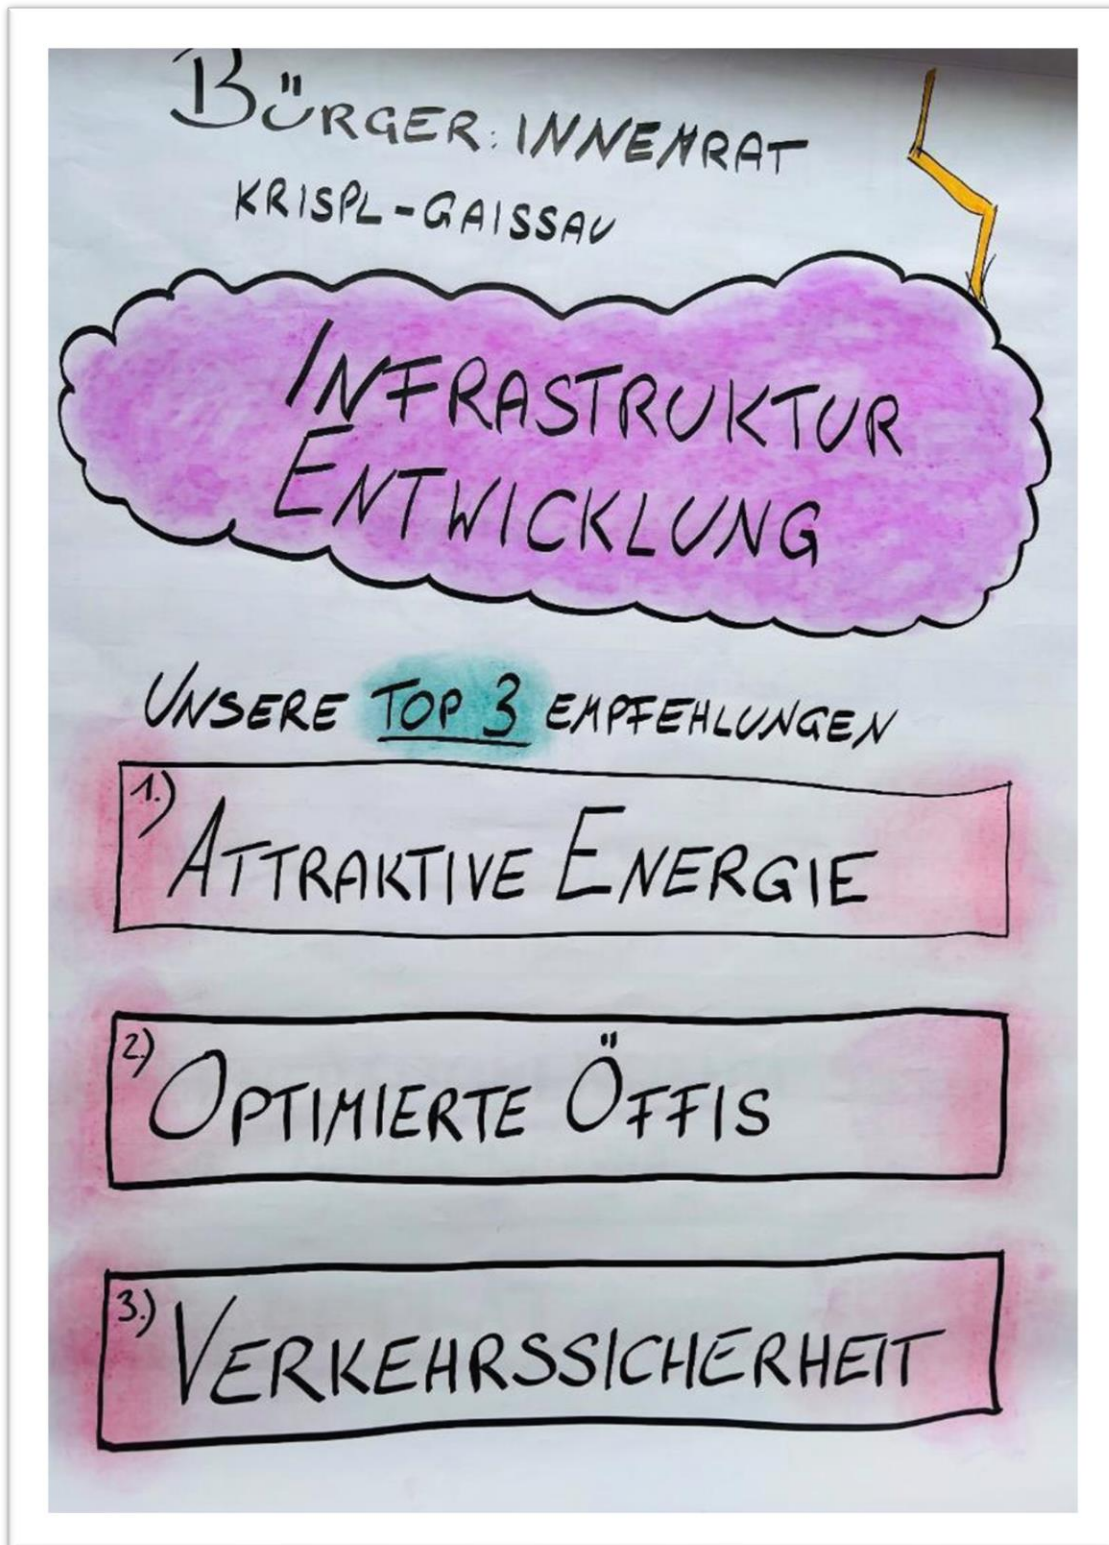 BÜRGER:INNENRAT
KRISPL-GAISSAU
INFRASTRUKTUR
ENTWICKLUNG
UNSERE TOP 3 EMPFEHLUNGEN
1.) ATTRAKTIVE ENERGIE
2.) OPTIMIERTE ÖFFIS
3.) VERKEHRSSICHERHEIT